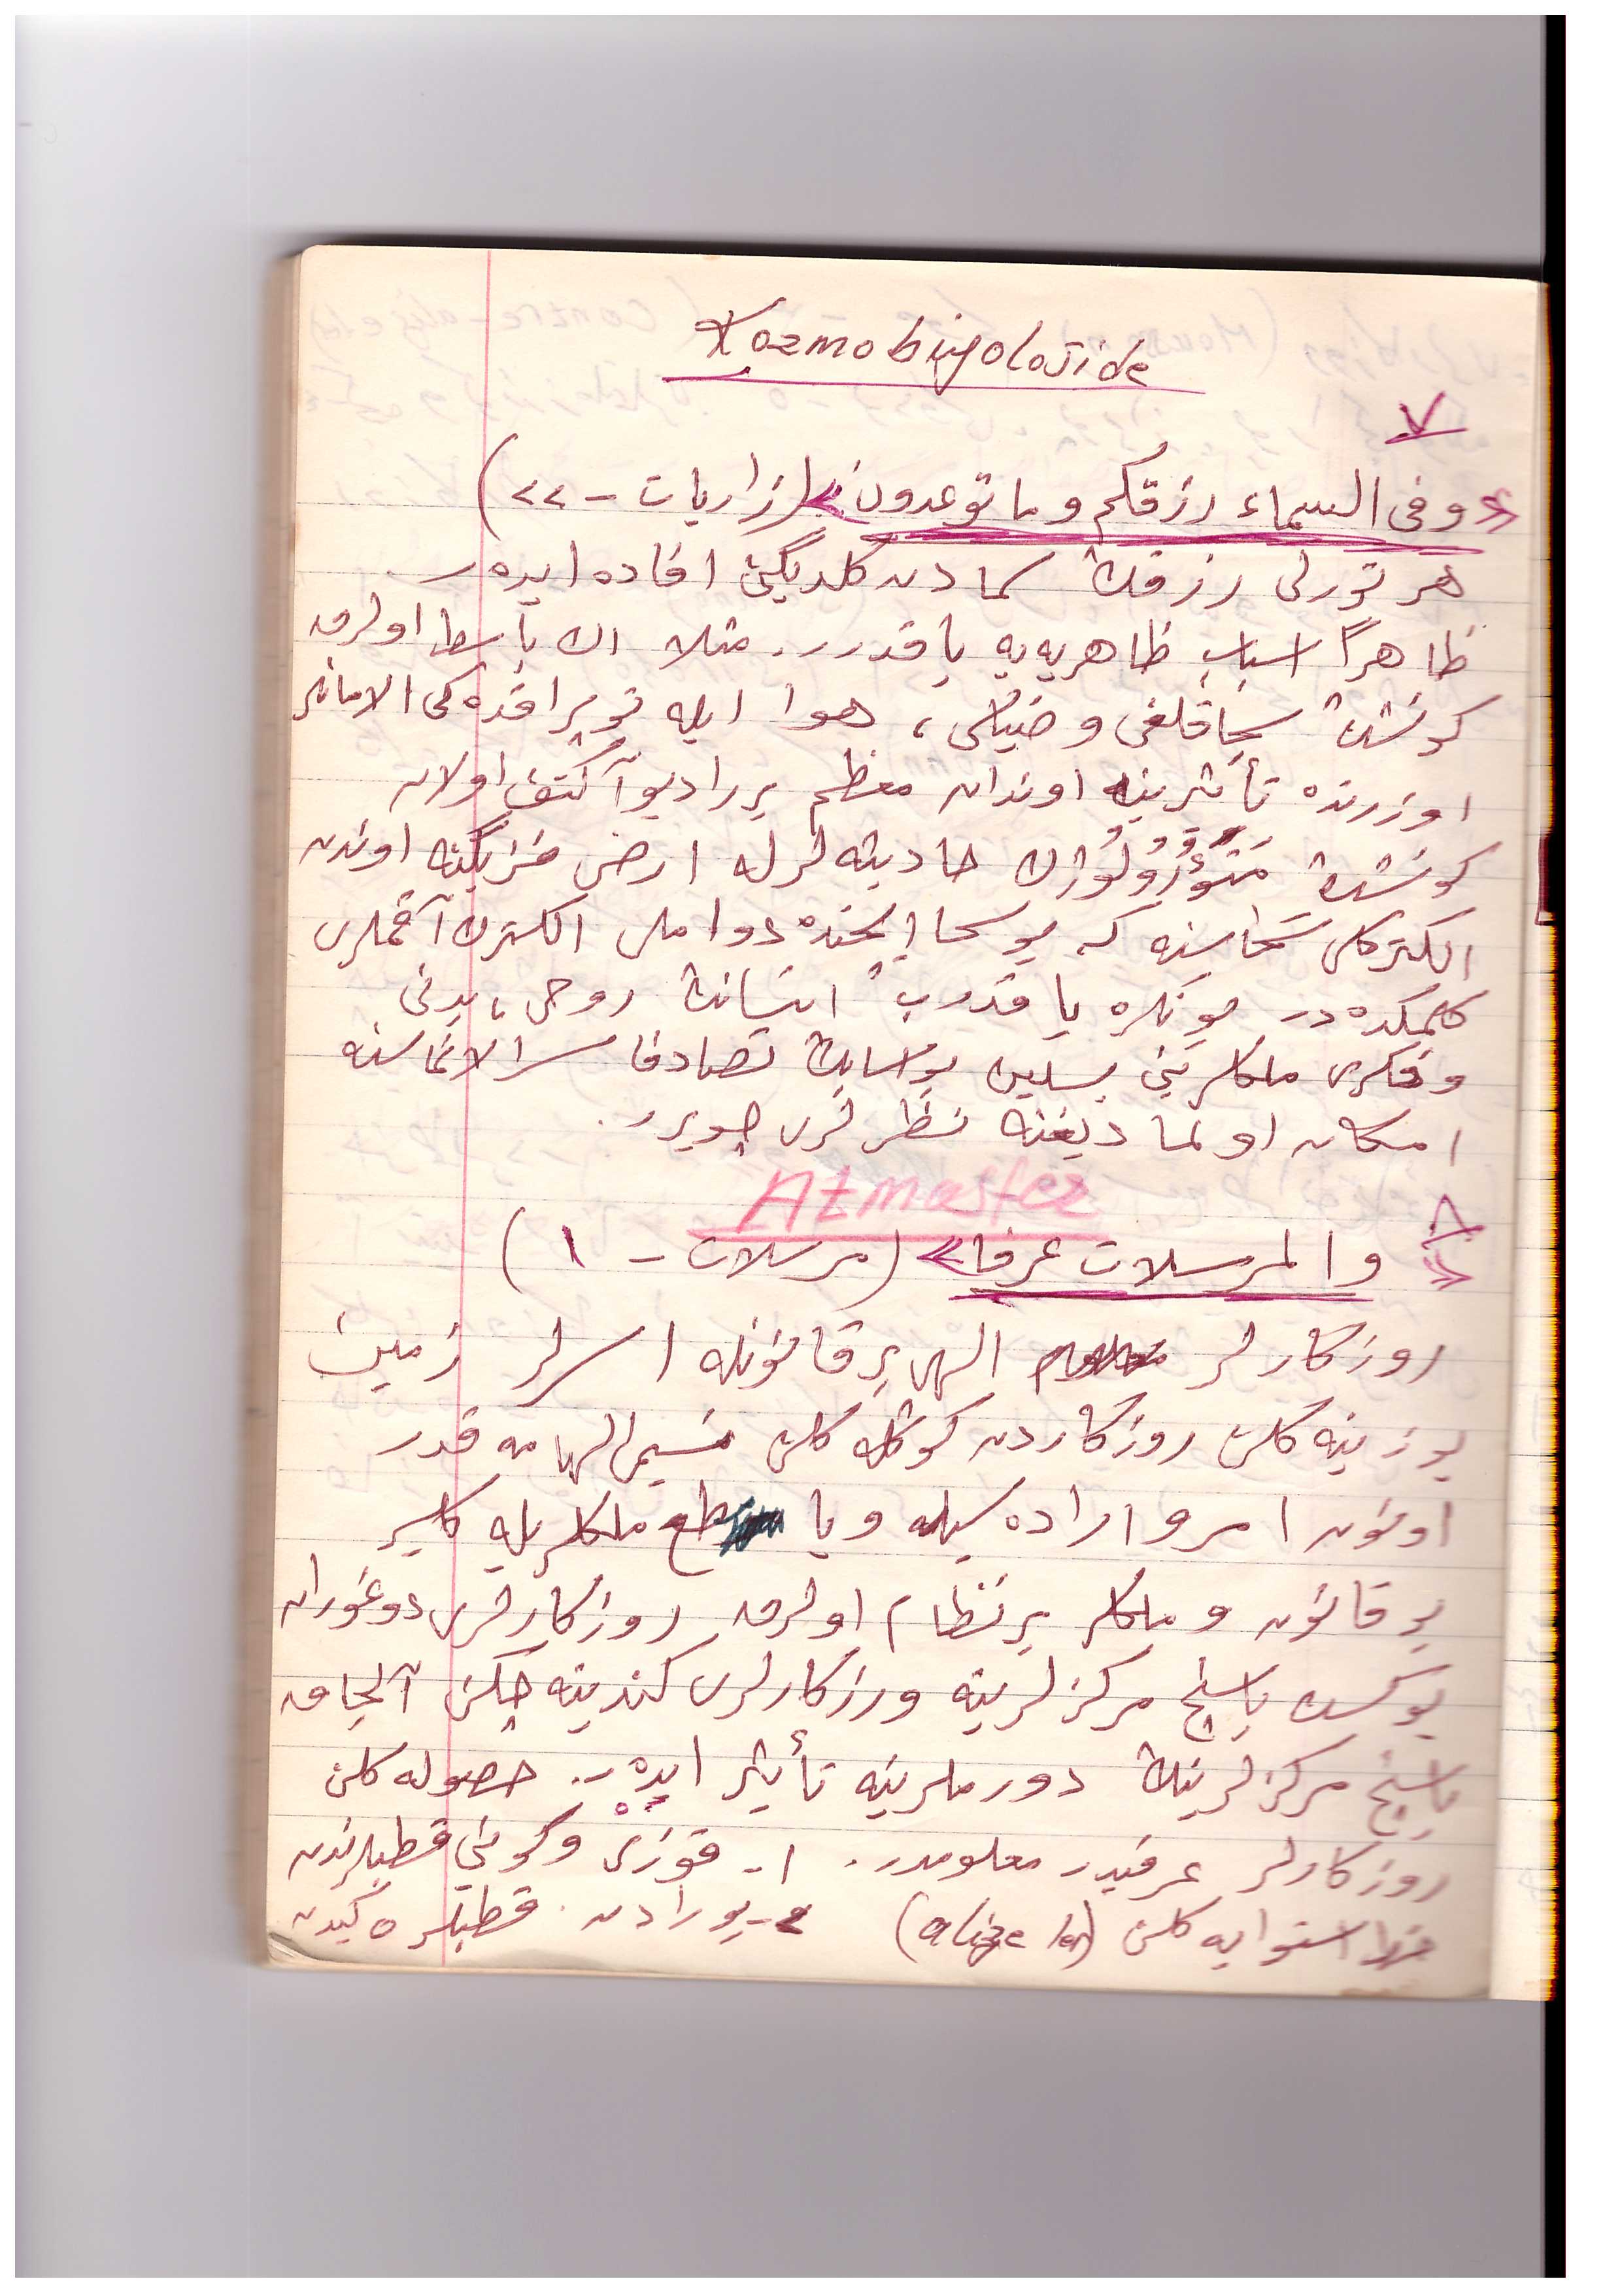 Kozmobiyolojide
٧
«وفى السماء رزقكم وما توعدون» (زاريات - ٢٢)
هر تورلى رزقڭ سمادن كلديگنى افاده ايده ر
ظاهراً اسباب ظاهريه يه باقدرر. مثلا اڭ باسط اولرق
كونشڭ سجاقلغى و ضياسى، هوا ايله توپراقده كى الامانلر
اوزرنده تأثرينه اوندان معظم بر راديو آكتف اولان
كونشڭ مَتَؤُرُولُوژك حادثه لرله ارض فزيگنه اوندن
الكتركلى سَحاسنه كه بو سحا ايچنده دواملى الكترك آقملرى
كلمكده در بونلره باقدرب انسانڭ روحى، بدنى
وفكرى ملكلرينى بسلين بو تصادفا
امكان اولماديغنه نظرلرى چويرر.
Atmosfer
٨
«والمرسلات عرفا» (مرسلات - ١)
روزكارلر الهى بر قانونله اسرلر زمين
يوزينه كلن روزكاردن كوڭله كلن نسيم الهامه قدر
اونون امر و اراده سيله ويا ملكلريله كلير
بو قانون و ملكلر بر نظام اولرق روزكارلرى دوغوران
يوكسك باسنج مركزلرينه و رزكارلرى كندينه چكن آلچاق
باسنج مركزلرينڭ دورملرينه تأثير ايده ر. حصوله كلن
روزكارلر عرفيدر معلومدر. ١- قوزى و گونى قطبلرندن
استوايه كلن (alize ler) ٢- بورادن قطبلره گيدن